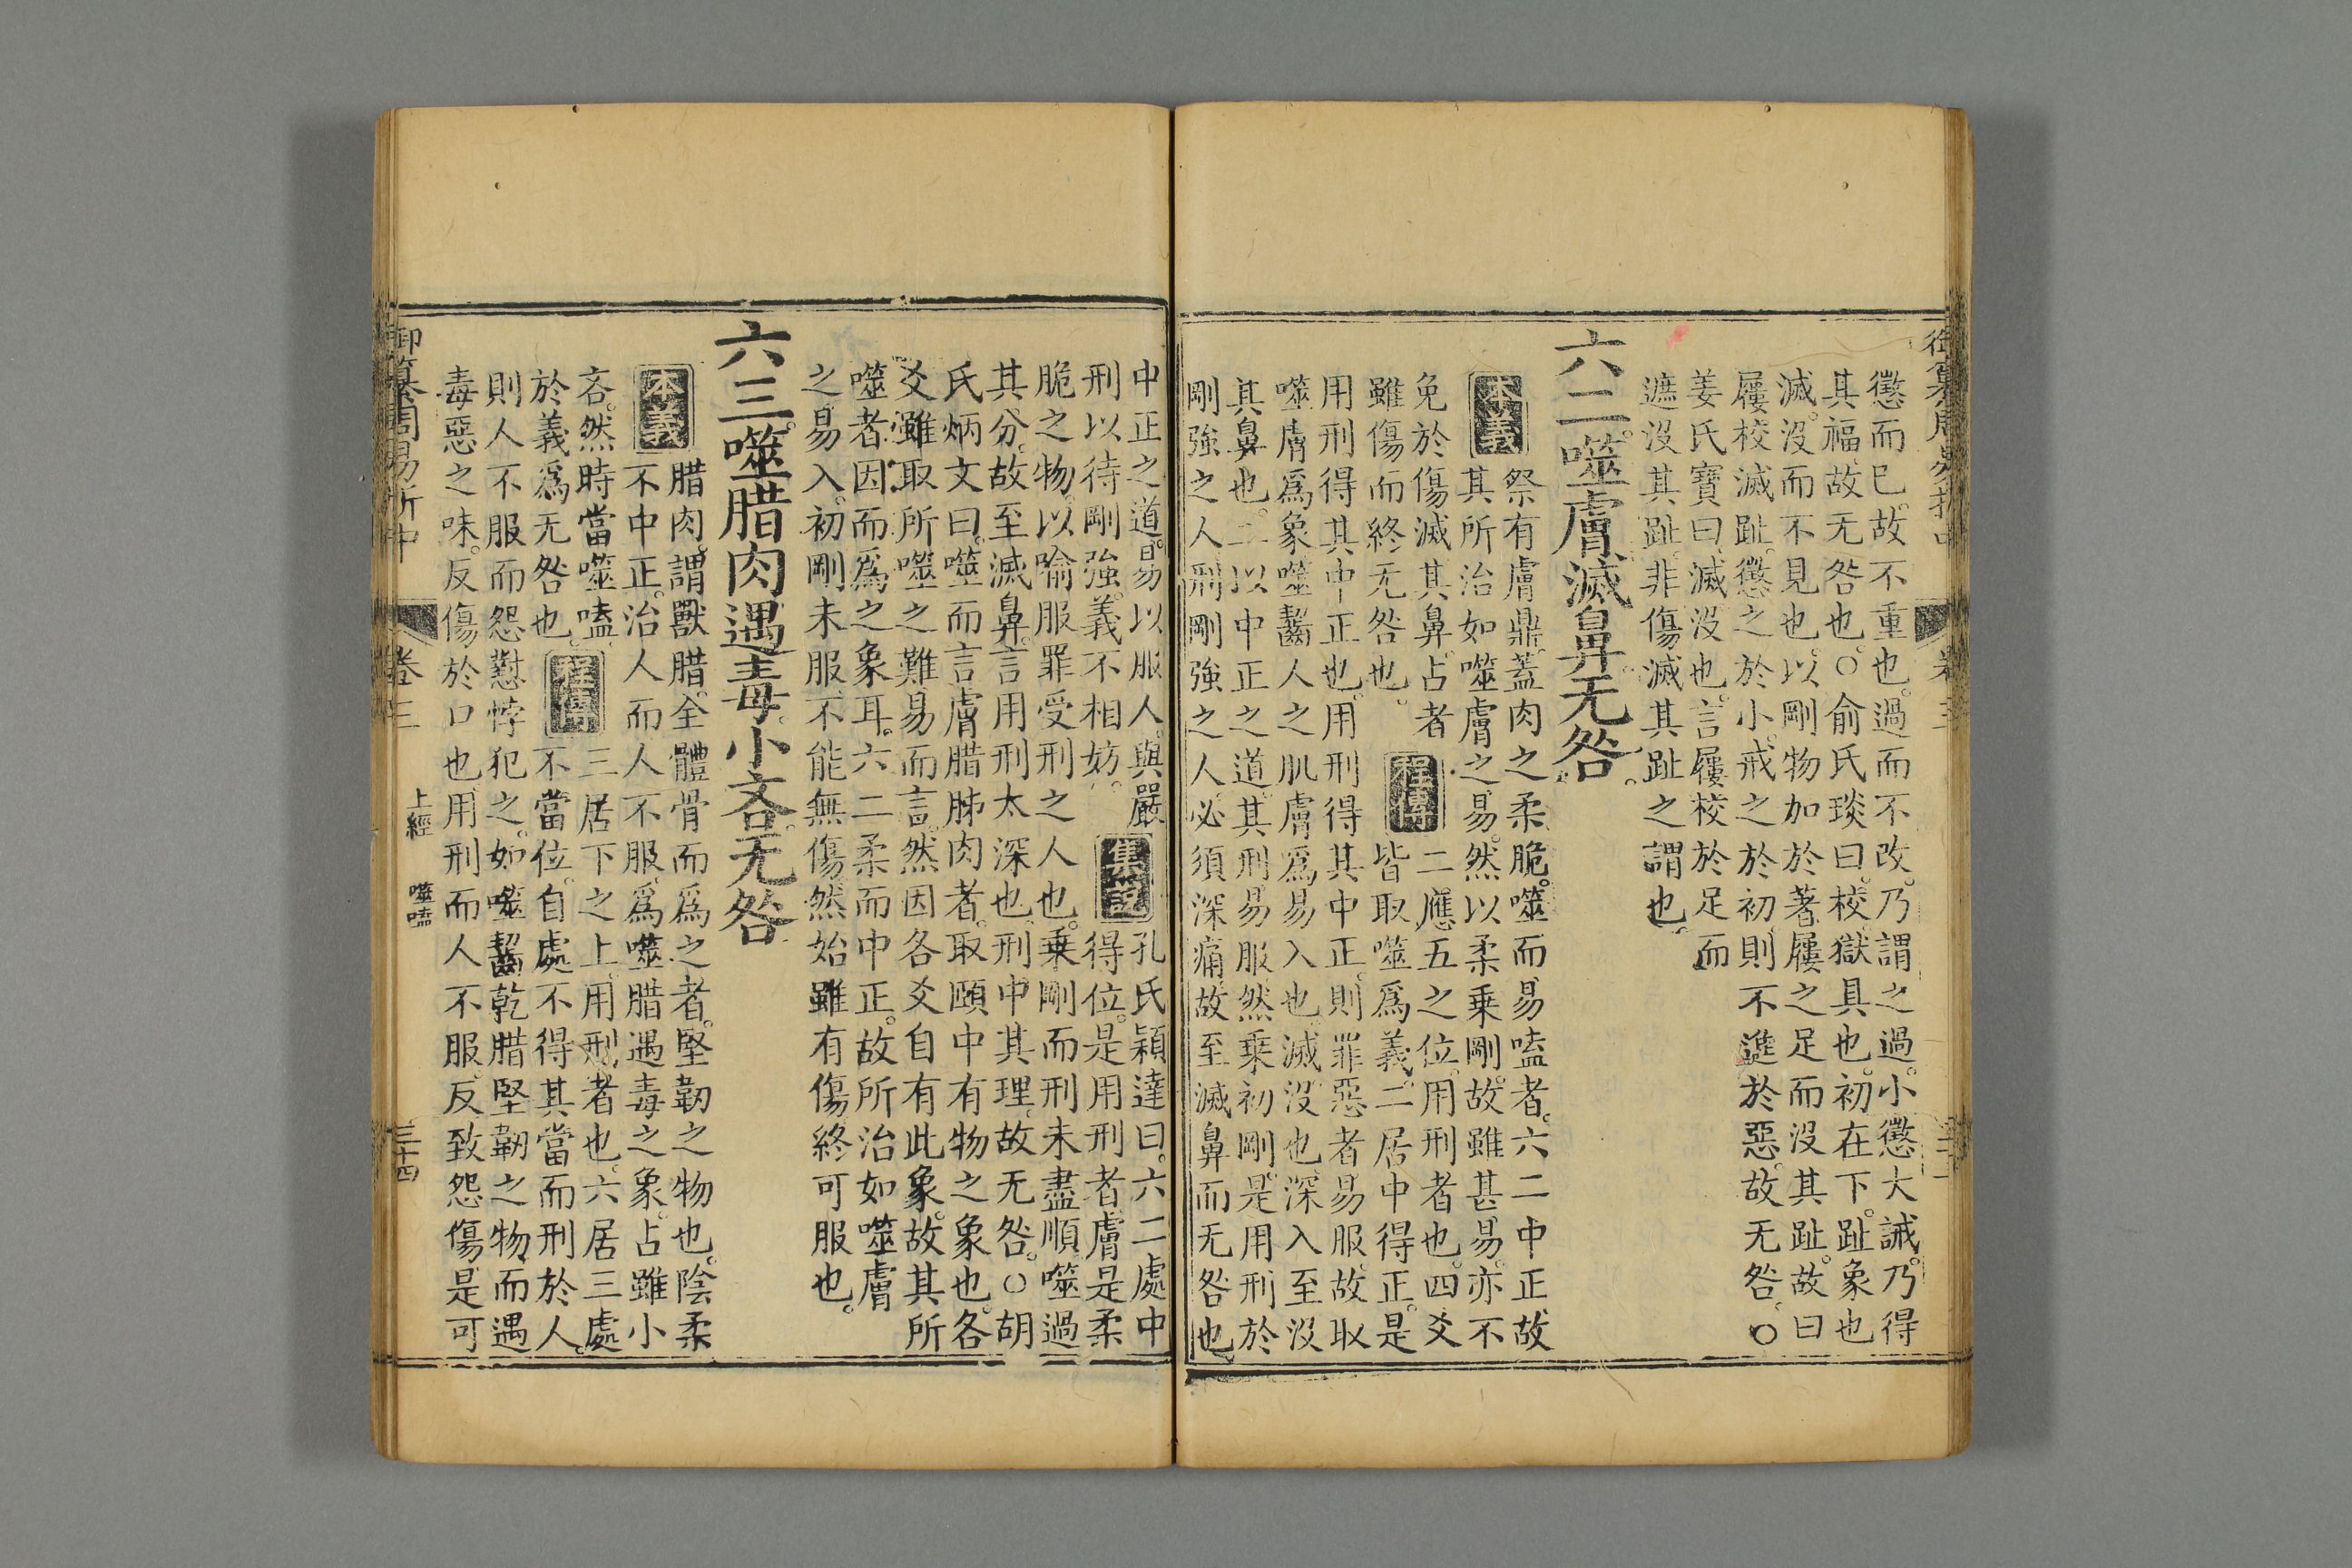 懲而已。故不重也。過而不改。乃謂之過。小懲大誡。乃得
其福。故无咎也。○俞氏琰曰。校。獄具也。初在下。趾象也。
滅。沒而不見也。以剛物加於著屨之足而沒其趾。故曰
屨校滅趾。懲之於小。戒之於初。則不進於惡。故无咎。○
姜氏寶曰。滅。沒也。言屨校於足而
遮沒其趾。非傷滅其趾之謂也。
六二。噬膚滅鼻。无咎。
本義 祭有膚鼎。蓋肉之柔脆。噬而易嗑者。六二中正。故
其所治如噬膚之易。然以柔乗剛。故雖甚易。亦不
免於傷滅其鼻。占者
雖傷而終无咎也。
程傳 二應五之位。用刑者也。四爻
皆取噬爲義。二居中得正。是
用刑得其中正也。用刑得其中正。則罪惡者易服。故取
噬膚爲象。噬齧人之肌膚爲易入也。滅沒也。深入至沒
其鼻也。二以中正之道。其刑易服。然乗初剛。是用刑於
剛強之人。刑剛強之人。必須深痛。故至滅鼻而无咎也。
中正之道。易以服人。與嚴
刑以待剛強。義不相妨。
集說 孔氏穎達曰。六二處中
得位。是用刑者。膚是柔
脆之物。以喻服罪受刑之人也。乗剛而刑未盡順。噬過
其分。故至滅鼻。言用刑太深也。刑中其理。故无咎。○胡
氏炳文曰。噬而言膚腊胏肉者。取頤中有物之象也。各
爻雖取所噬之難易而言。然因各爻自有此象。故其所
噬者因而爲之象耳。六二柔而中正。故所治如噬膚
之易入。初剛未服。不能無傷。然始雖有傷。終可服也。
六三。噬腊肉遇毒。小吝。无咎。
本義 腊肉。謂獸腊。全體骨而爲之者。堅韌之物也。陰柔
不中正。治人而人不服。爲噬腊遇毒之象。占雖小
吝。然時當噬嗑。
於義爲无咎也。
程傳 三居下之上。用刑者也。六居三處
不當位。自處不得其當而刑於人。
則人不服而怨懟悖犯之。如噬齧乾腊堅韌之物。而遇
毒惡之味。反傷於口也。用刑而人不服。反致怨傷。是可
御纂周易折中 卷三 上經 噬嗑 三十四